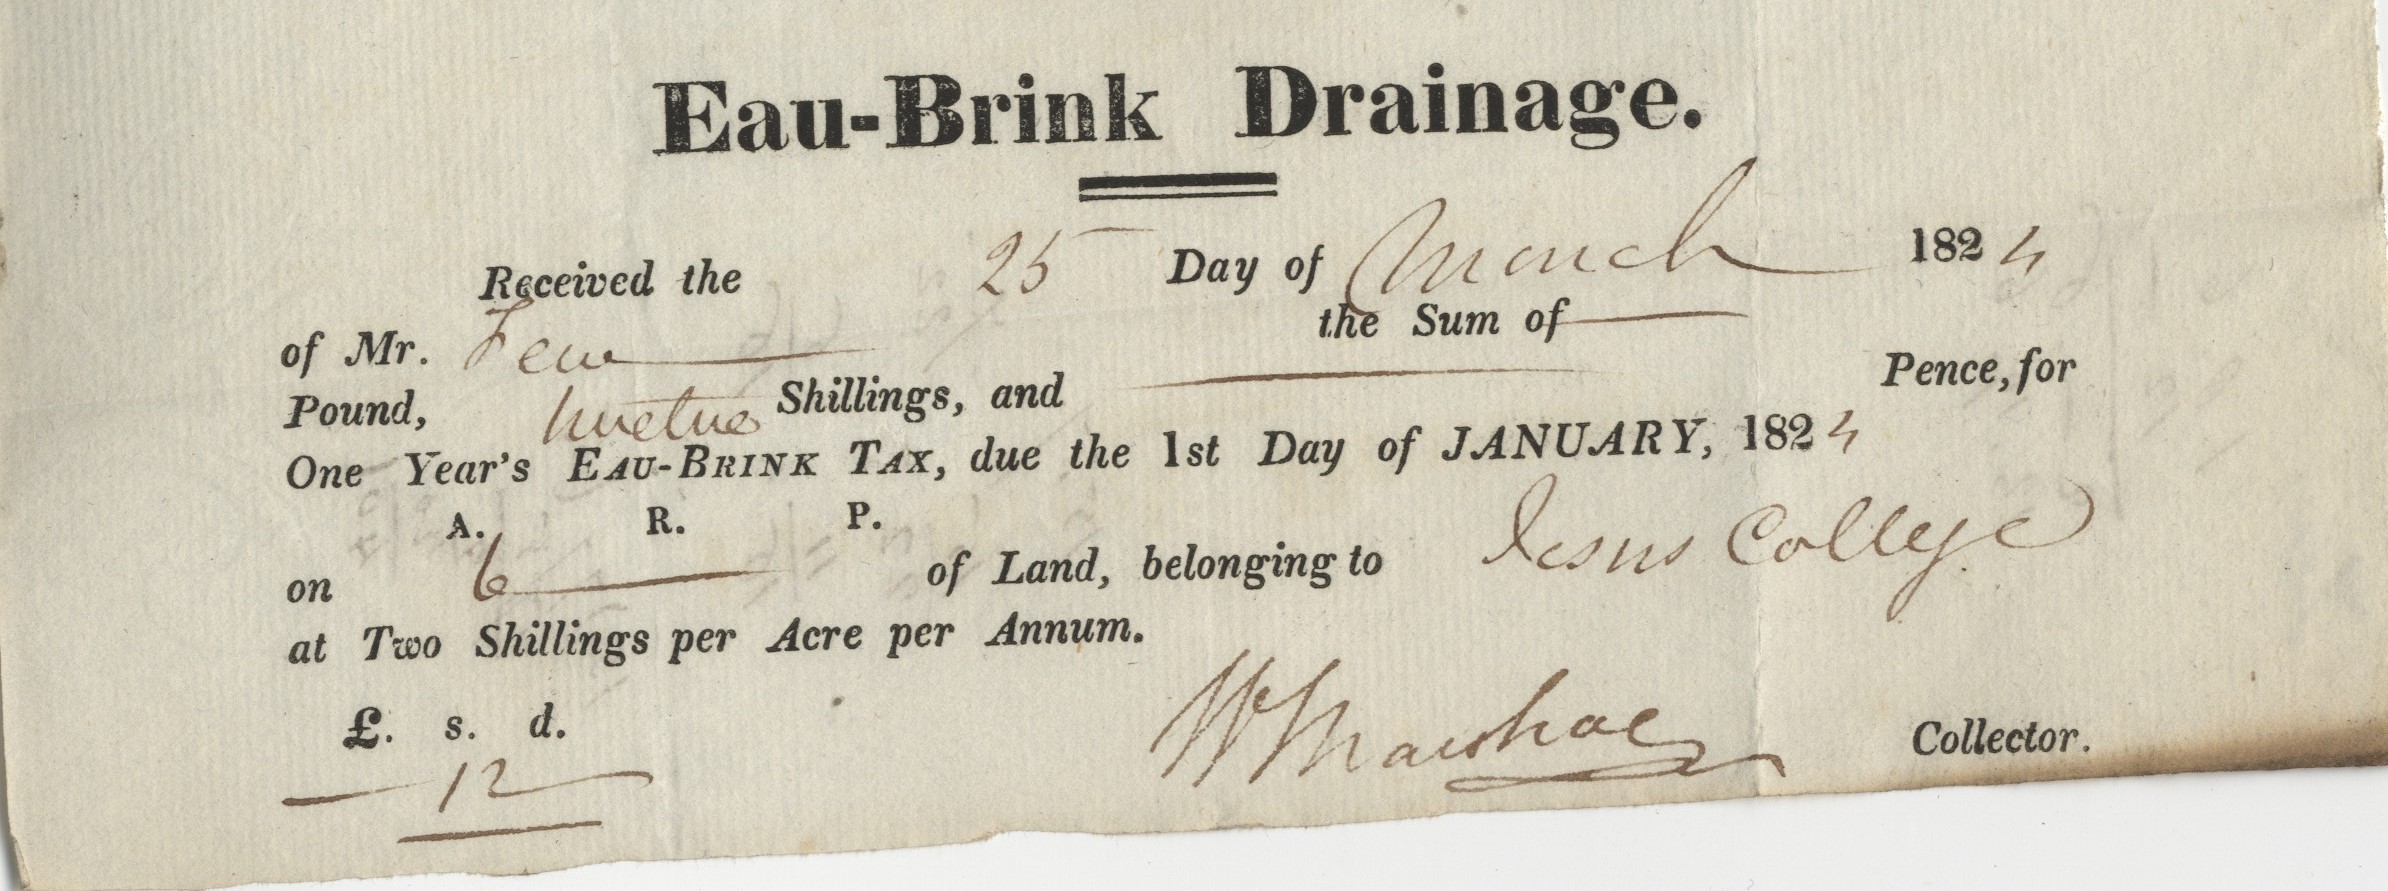 Eau-Brink Drainage.
Received the 25 Day of March 1824
of Mr. Few the Sum of
Pound, twelve Shillings, and Pence, for
One Year's EAU-BRINK TAX, due the 1st Day of JANUARY, 1824
A. R. P.
on 6 of Land, belonging to Jesus College
at Two Shillings per Acre per Annum.
£. s. d.
12
W Marshall Collector.